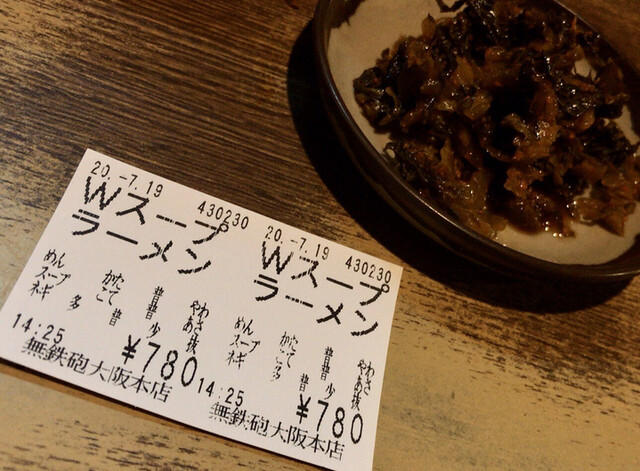 20.-7.19 430230
Wスープ
ラーメン
めん かた 普 やわ
スープ こて 普 あさ
ネギ 多 普 少 抜
¥780
14:25
無鉄砲大阪本店
20.-7.19 430230
Wスープ
ラーメン
めん かた 普 やわ
スープ こて 普 あさ
ネギ 多 普 少 抜
¥780
14:25
無鉄砲大阪本店